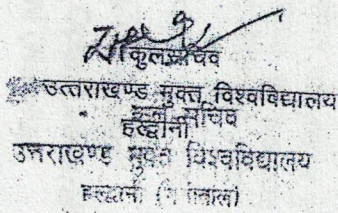 कुलसचिव
उत्तराखण्ड मुक्त विश्वविद्यालय
कुल सचिव
हल्द्वानी
उत्तराखण्ड मुक्त विश्वविद्यालय
हल्द्वानी (नैनीताल)